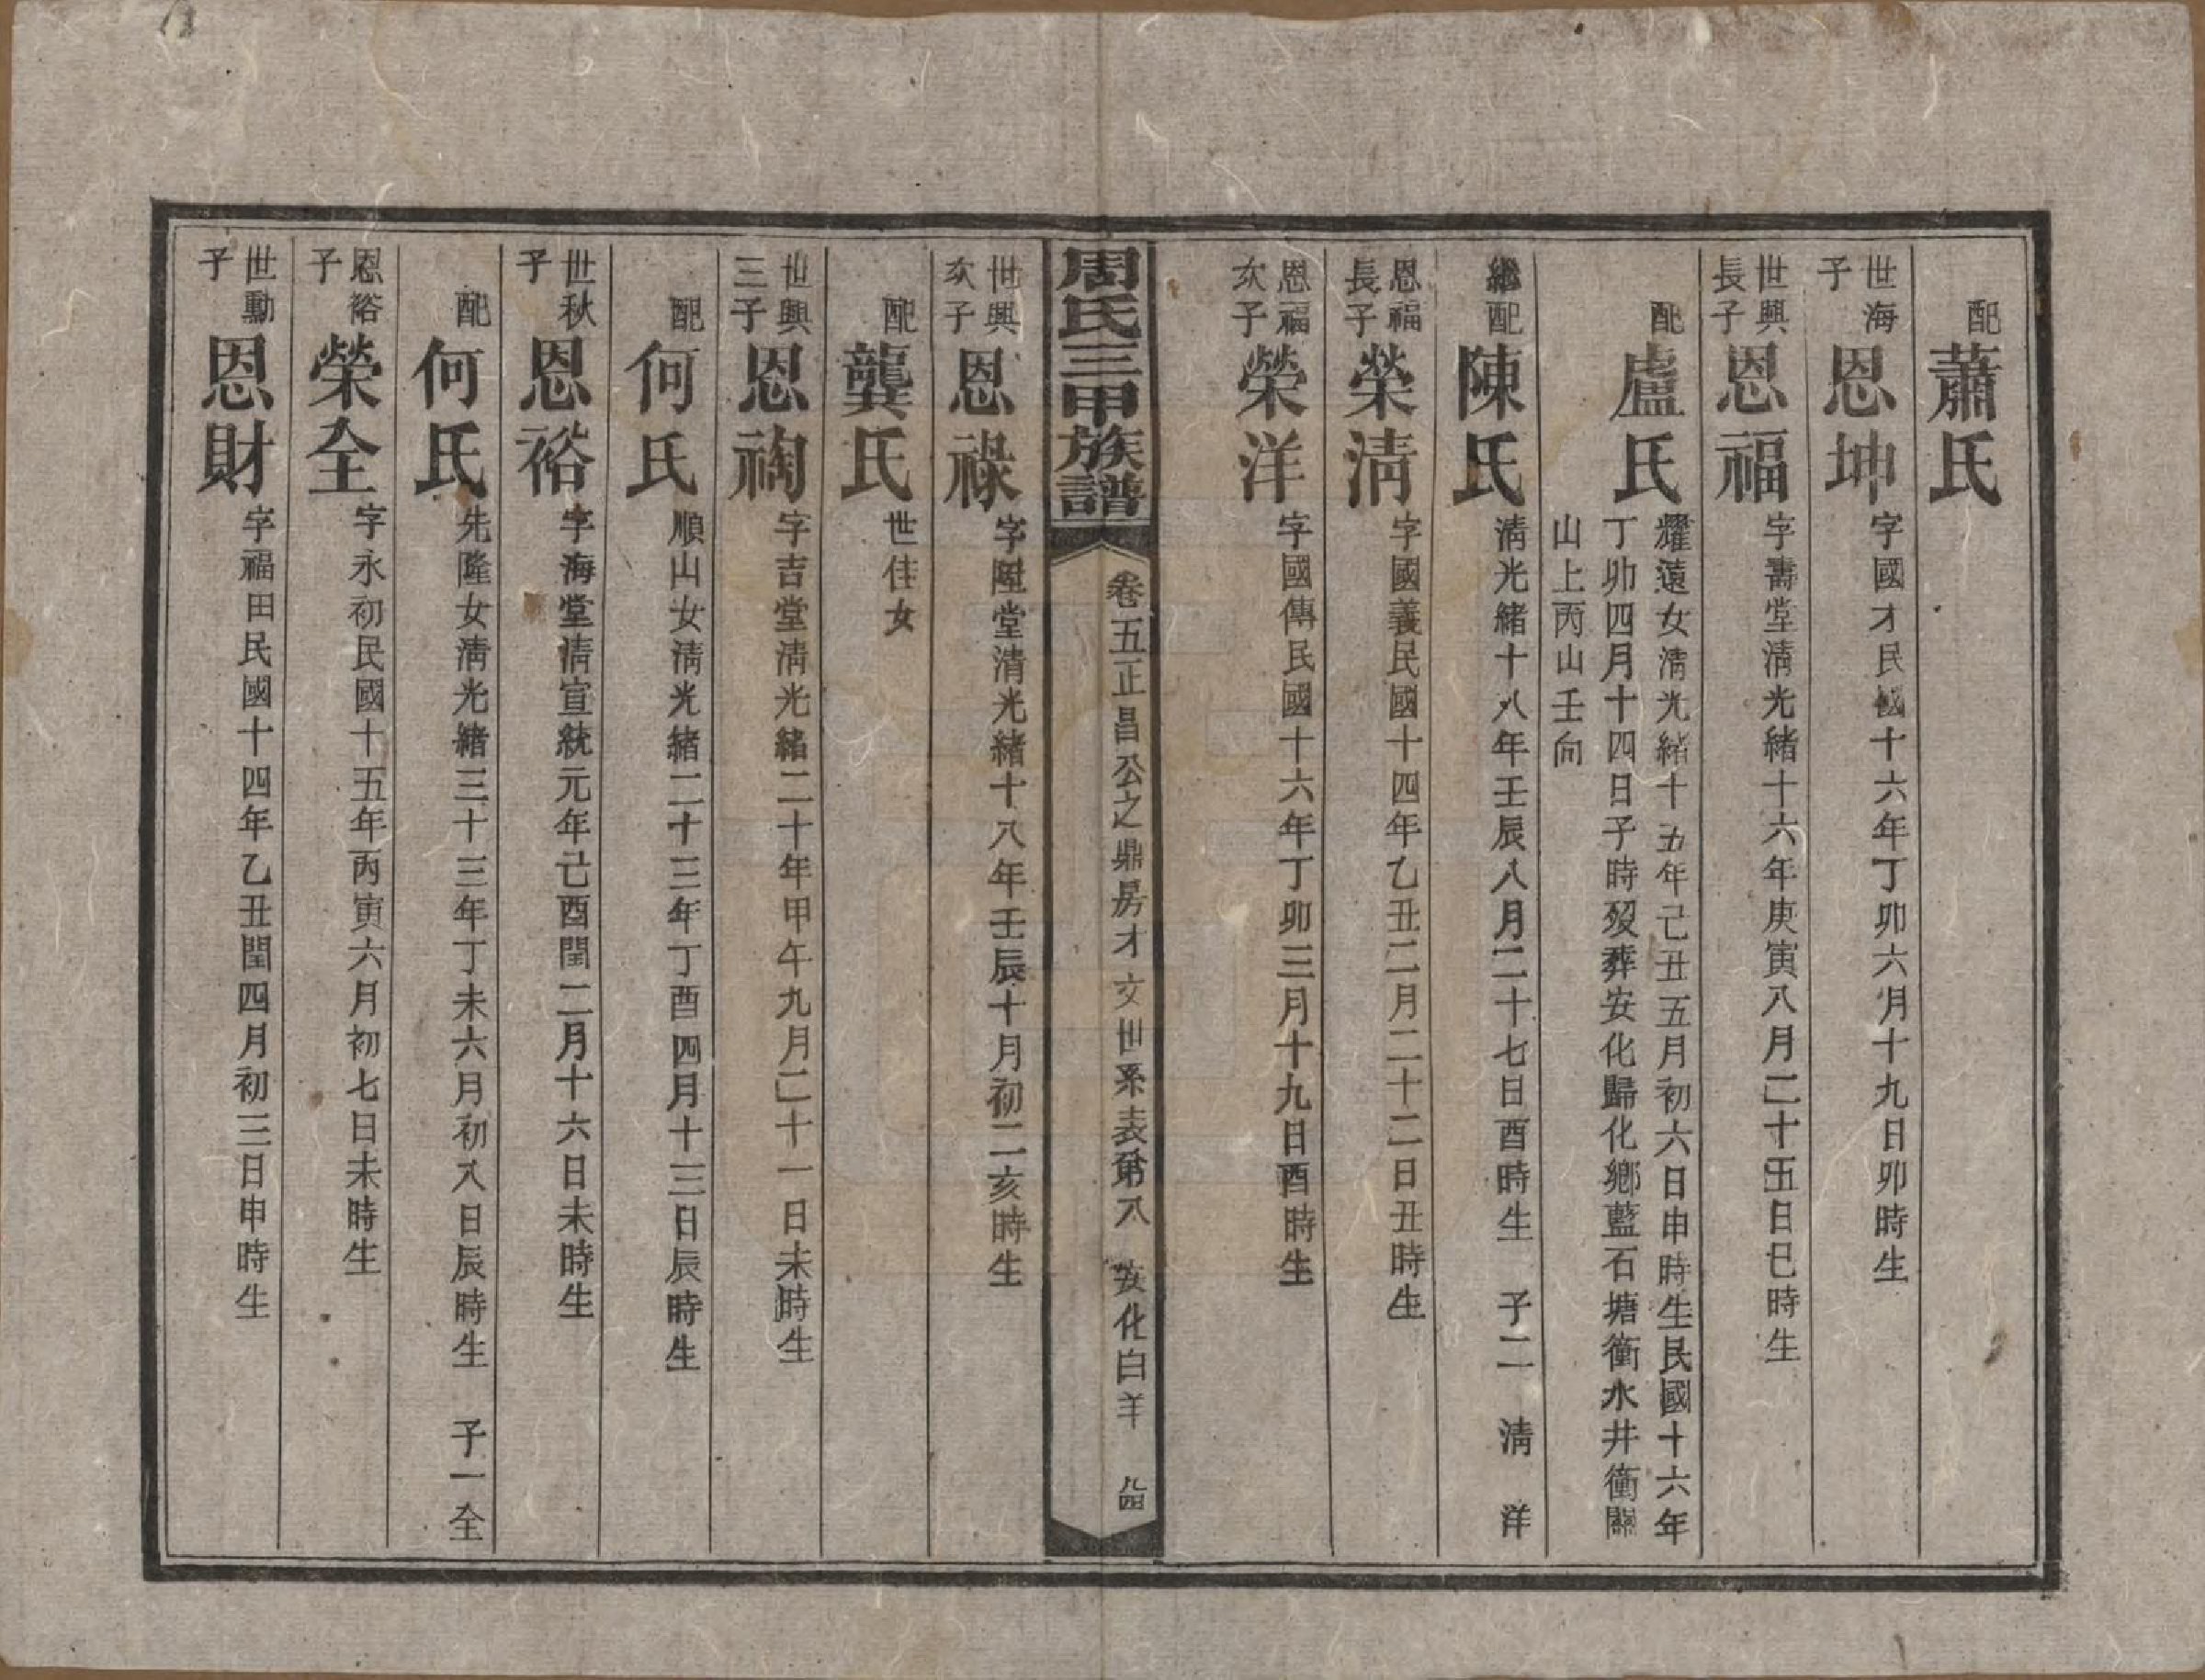 配 蕭氏
世海子 恩坤 字國才民國十六年丁卯六月十九日卯時生
世興長子 恩福 字壽堂淸光緒十六年庚寅八月二十五日巳時生
配 盧氏 耀遠女淸光緒十五年己丑五月初六日申時生民國十六年
丁卯四月十四日子時歿葬安化歸化鄉藍石塘衝水井衝關
山上丙山壬向
繼配 陳氏 淸光緒十八年壬辰八月二十七日酉時生 子二 淸 洋
恩福長子 榮淸 字國義民國十四年乙丑二月二十二日丑時生
恩福次子 榮洋 字國傳民國十六年丁卯三月十九日酉時生
周氏三甲族譜 卷五正昌公之鼎房才文世系表第八 安化白羊 八四
世興次子 恩祿 字陞堂清光緒十八年壬辰十月初二亥時生
配 龔氏 世佳女
世興三子 恩祹 字吉堂淸光緒二十年甲午九月二十一日未時生
配 何氏 順山女淸光緒二十三年丁酉四月十三日辰時生
世秋子 恩裕 字海堂淸宣統元年己酉閏二月十六日未時生
配 何氏 先隆女淸光緒三十三年丁未六月初八日辰時生 子一全
恩裕子 榮全 字永初民國十五年丙寅六月初七日未時生
世勳子 恩財 字福田民國十四年乙丑閏四月初三日申時生